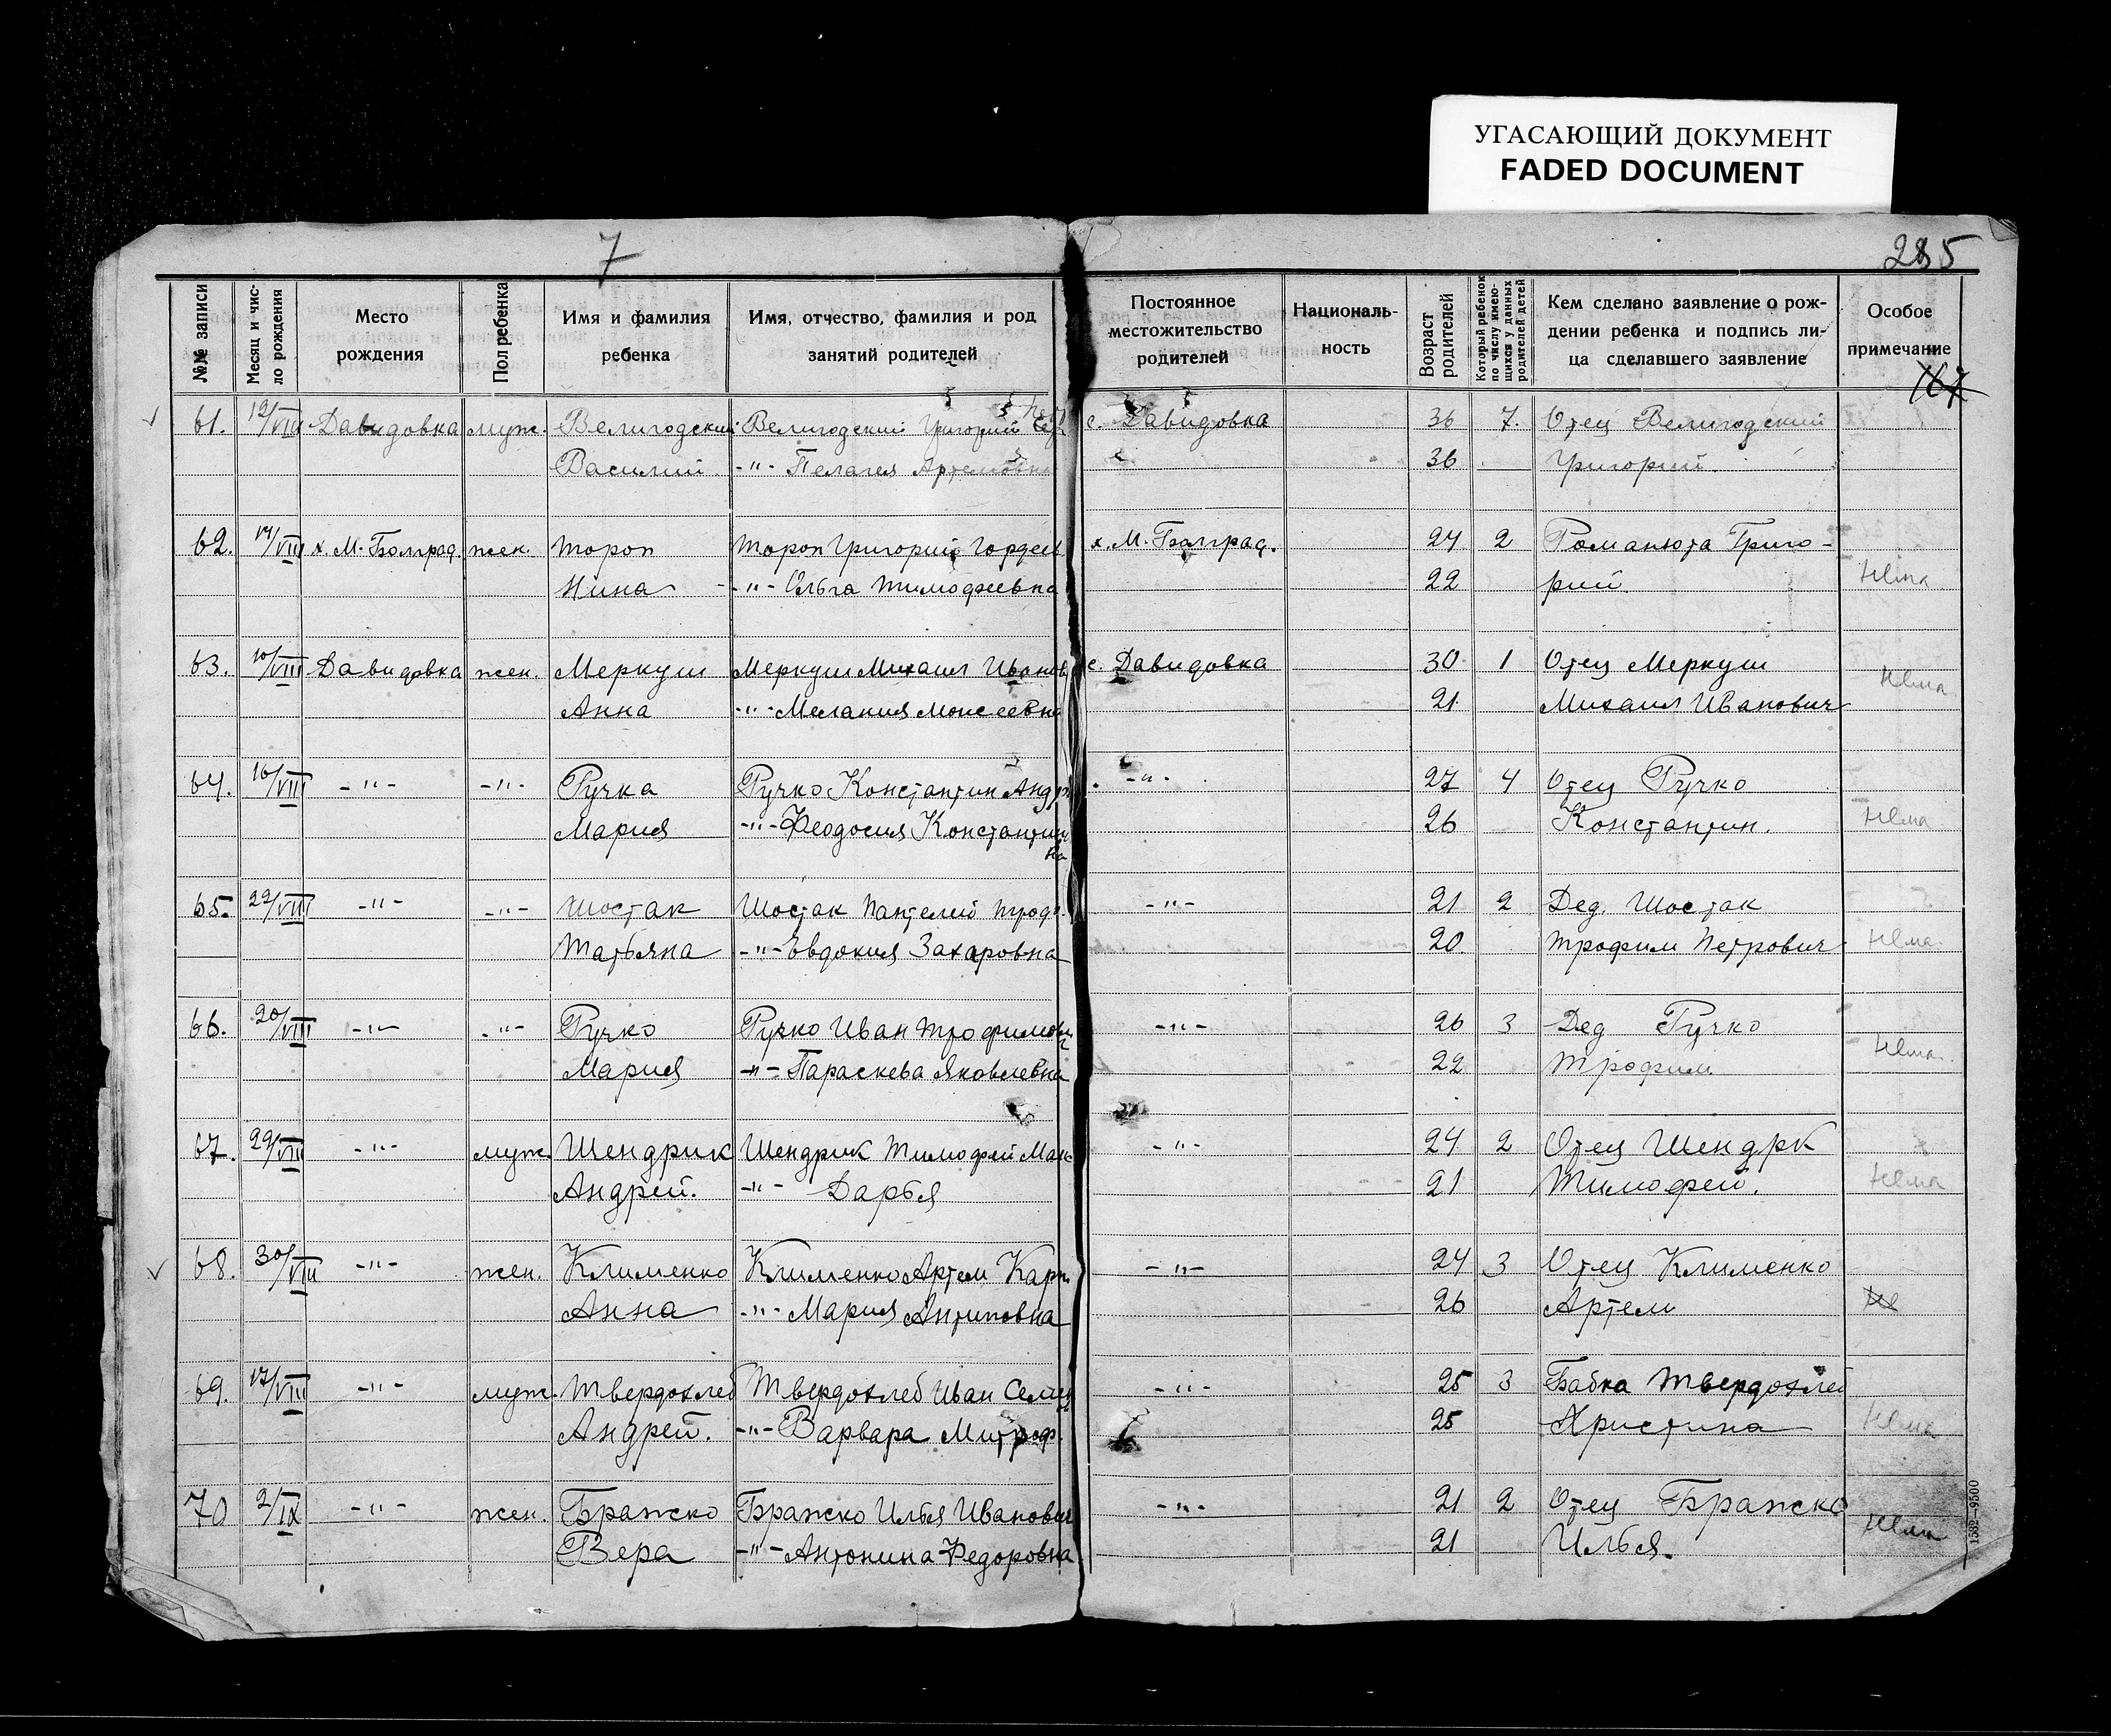 УГАСАЮЩИЙ ДОКУМЕНТ
FADED DOCUMENT
7
285
№№ записи
Месяц и число рождения
Место рождения
Пол ребенка
Имя и фамилия ребенка
Имя, отчество, фамилия и род занятий родителей
Постоянное местожительство родителей
Националь-
ность
Возраст родителей
Который ребенок по числу имею-
щихся у данных родителей детей
Кем сделано заявление о рож-
дении ребенка и подпись ли-
ца сделавшего заявление
Особое примечание
167
61. 12/VIII Давидовка муж. Велигодский Велигодский Григорий с. Давидовка 36 7. Отец Велигодский
Василий -"- Пелагея Артемовна 36 Григорий.
62. 14/VIII х. М. Болград. жен. Тороп Тороп Григорий Гордеев х. М. Болград. 24 2 Романюта Григо-
Нина -"- Ольга Тимофеевна 22 рий.
63. 10/VIII Давидовка жен. Меркуш Меркуш Михаил Иванов с. Давидовка 30 1 Отец Меркуш
Анна -"- Мелания Моисеевна 21. Михаил Иванович
64. 16/VIII -"- -"- Ручка Ручко Константин Андр -"- 27 4 Отец Ручко
Мария -"- Феодосия Константинов 26 Константин.
на
65. 22/VIII -"- -"- Шостак Шостак Пантелей Троф. -"- 21 2 Дед. Шостак
Татьяна -"- Евдокия Захаровна 20. Трофим Петрович
66. 20/VIII -"- -"- Ручко Ручко Иван Трофимович -"- 26 3 Дед Ручко
Мария -"- Параскева Яковлевна 22 Трофим
67. 29/VIII -"- муж. Шендрик Шендрик Тимофей Мак -"- 24 2 Отец Шендрк
Андрей. -"- Дарья 21 Тимофей.
68. 30/VIII -"- жен. Клименко Клименко Артем Карп. -"- 24 3 Отец Клименко
Анна -"- Мария Антиповна 26 Артем
69. 17/VIII -"- муж. Твердохлеб Твердохлеб Иван Семен -"- 25 3 Бабка Твердохлеб
Андрей. -"- Варвара Митроф. 25 Христина
70 2/IX -"- жен. Бражко Бражко Илья Иванович -"- 21 2 Отец Бражко
Вера -"- Антонина Федоровна 21 Илья.
1582—9500